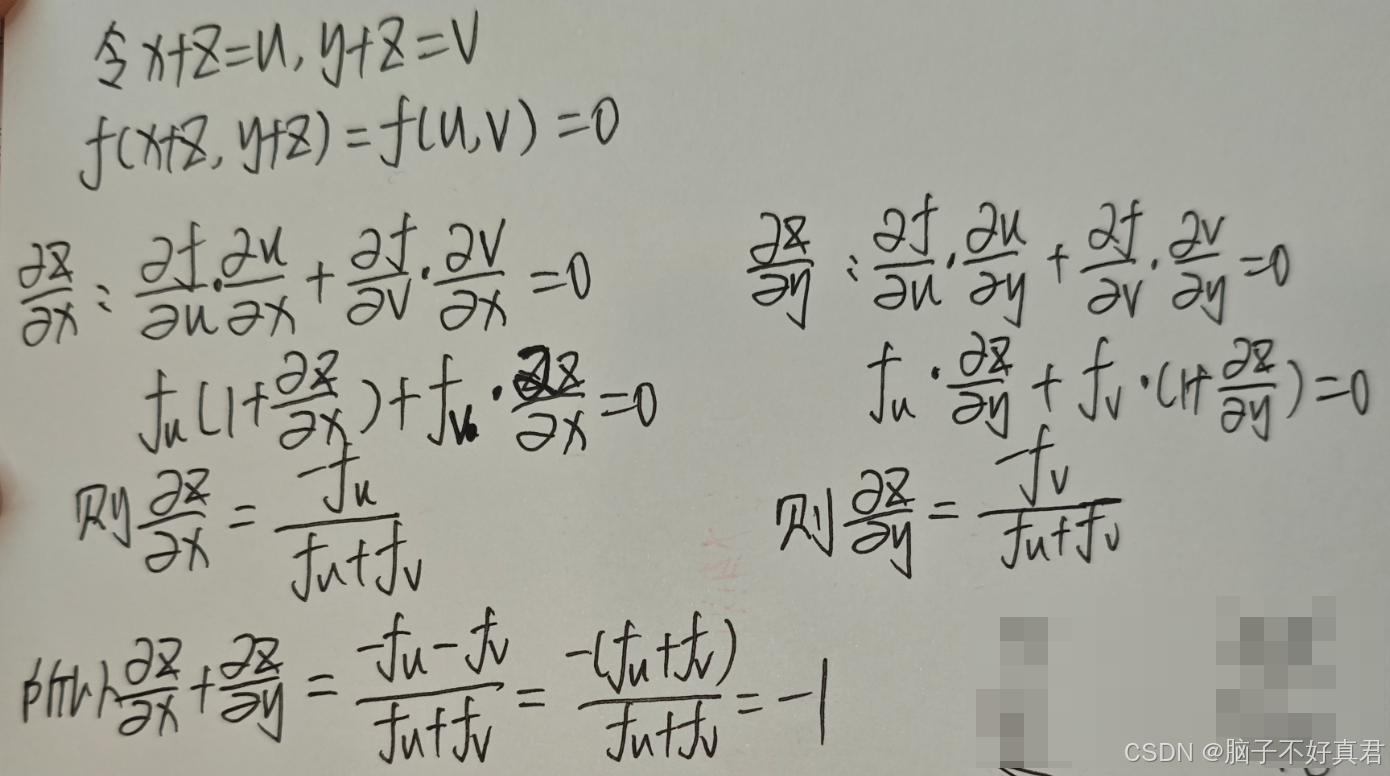 令x+z=u, y+z=v
f(x+z, y+z)=f(u,v)=0
∂z/∂x: ∂f/∂u·∂u/∂x + ∂f/∂v·∂v/∂x =0
f_u(1+∂z/∂x)+f_v·∂z/∂x=0
则∂z/∂x = -f_u/(f_u+f_v)
∂z/∂y: ∂f/∂u·∂u/∂y + ∂f/∂v·∂v/∂y=0
f_u·∂z/∂y + f_v·(1+∂z/∂y)=0
则∂z/∂y = -f_v/(f_u+f_v)
所以∂z/∂x+∂z/∂y = (-f_u-f_v)/(f_u+f_v) = -(f_u+f_v)/(f_u+f_v) = -1
CSDN @脑子不好真君